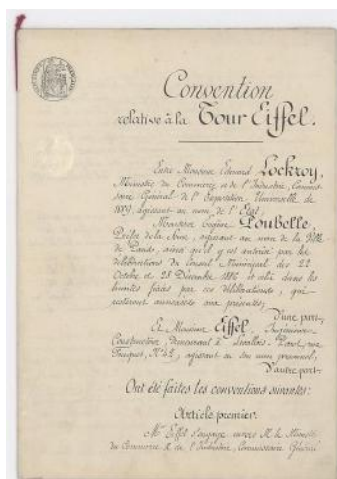 Convention
relative à la Tour Eiffel.
Entre Monsieur Edouard Lockroy,
Ministre du Commerce et de l'Industrie, Commis-
saire Général de l'Exposition Universelle de
1889, agissant au nom de l'Etat,
Monsieur Eugène Poubelle,
Préfet de la Seine, agissant au nom de la Ville
de Paris, ainsi qu'il y est autorisé par les
délibérations du Conseil Municipal des 22
Octobre et 28 Décembre 1886 et cela dans les
limites fixées par ces délibérations, qui
resteront annexées aux présentes;
D'une part,
Et Monsieur Eiffel, Ingénieur-
Constructeur, demeurant à Levallois-Perret, rue
Fouquet, N°42, agissant en son nom personnel,
D'autre part.
Ont été faites les conventions suivantes:
Article premier.
Mr Eiffel s'engage envers M. le Ministre
du Commerce & de l'Industrie, Commissaire Général